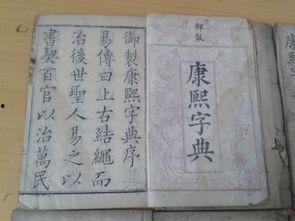 御製
康熙字典
御製康熙字典序
易傳曰上古結繩而
治後世聖人易之以
書契百官以治萬民